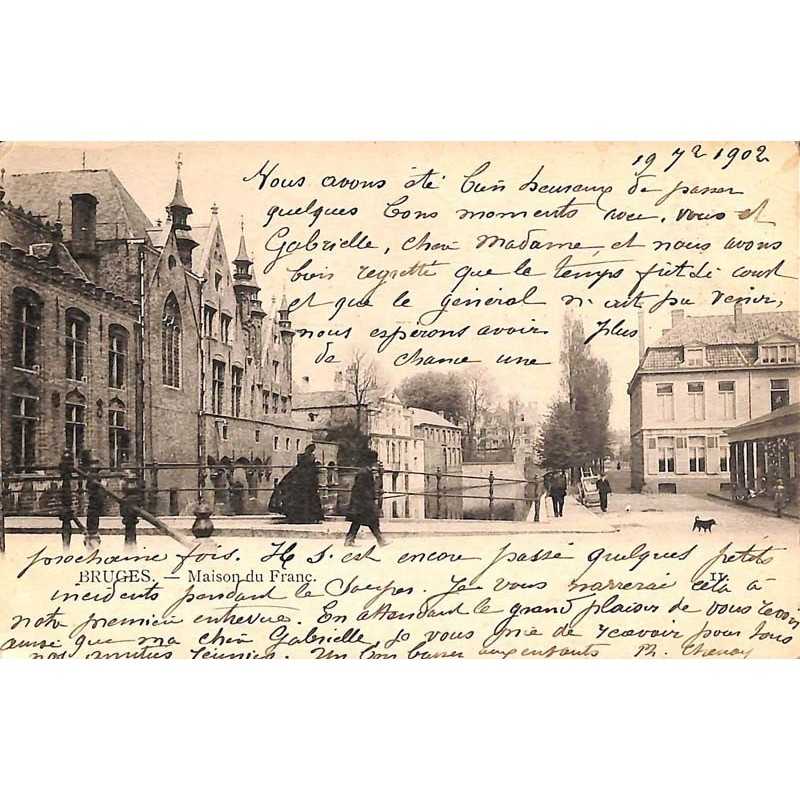 19 7re 1902
Nous avons été bien heureux de passer
quelques bons moments avec vous et
Gabrielle, chère Madame, et nous avons
bien regretté que le temps fût si court
et que le général n'ait pu venir,
nous espérons avoir plus
de chance une
prochaine fois. Il s'est encore passé quelques petits
BRUGES. — Maison du Franc.
11
incidents pendant le Souper. Je vous narrerai cela à
notre première entrevue. En attendant le grand plaisir de vous revoir
ainsi que ma chère Gabrielle, je vous prie de recevoir pour tous
nos amitiés réunies. Un bon baiser aux enfants Ph.